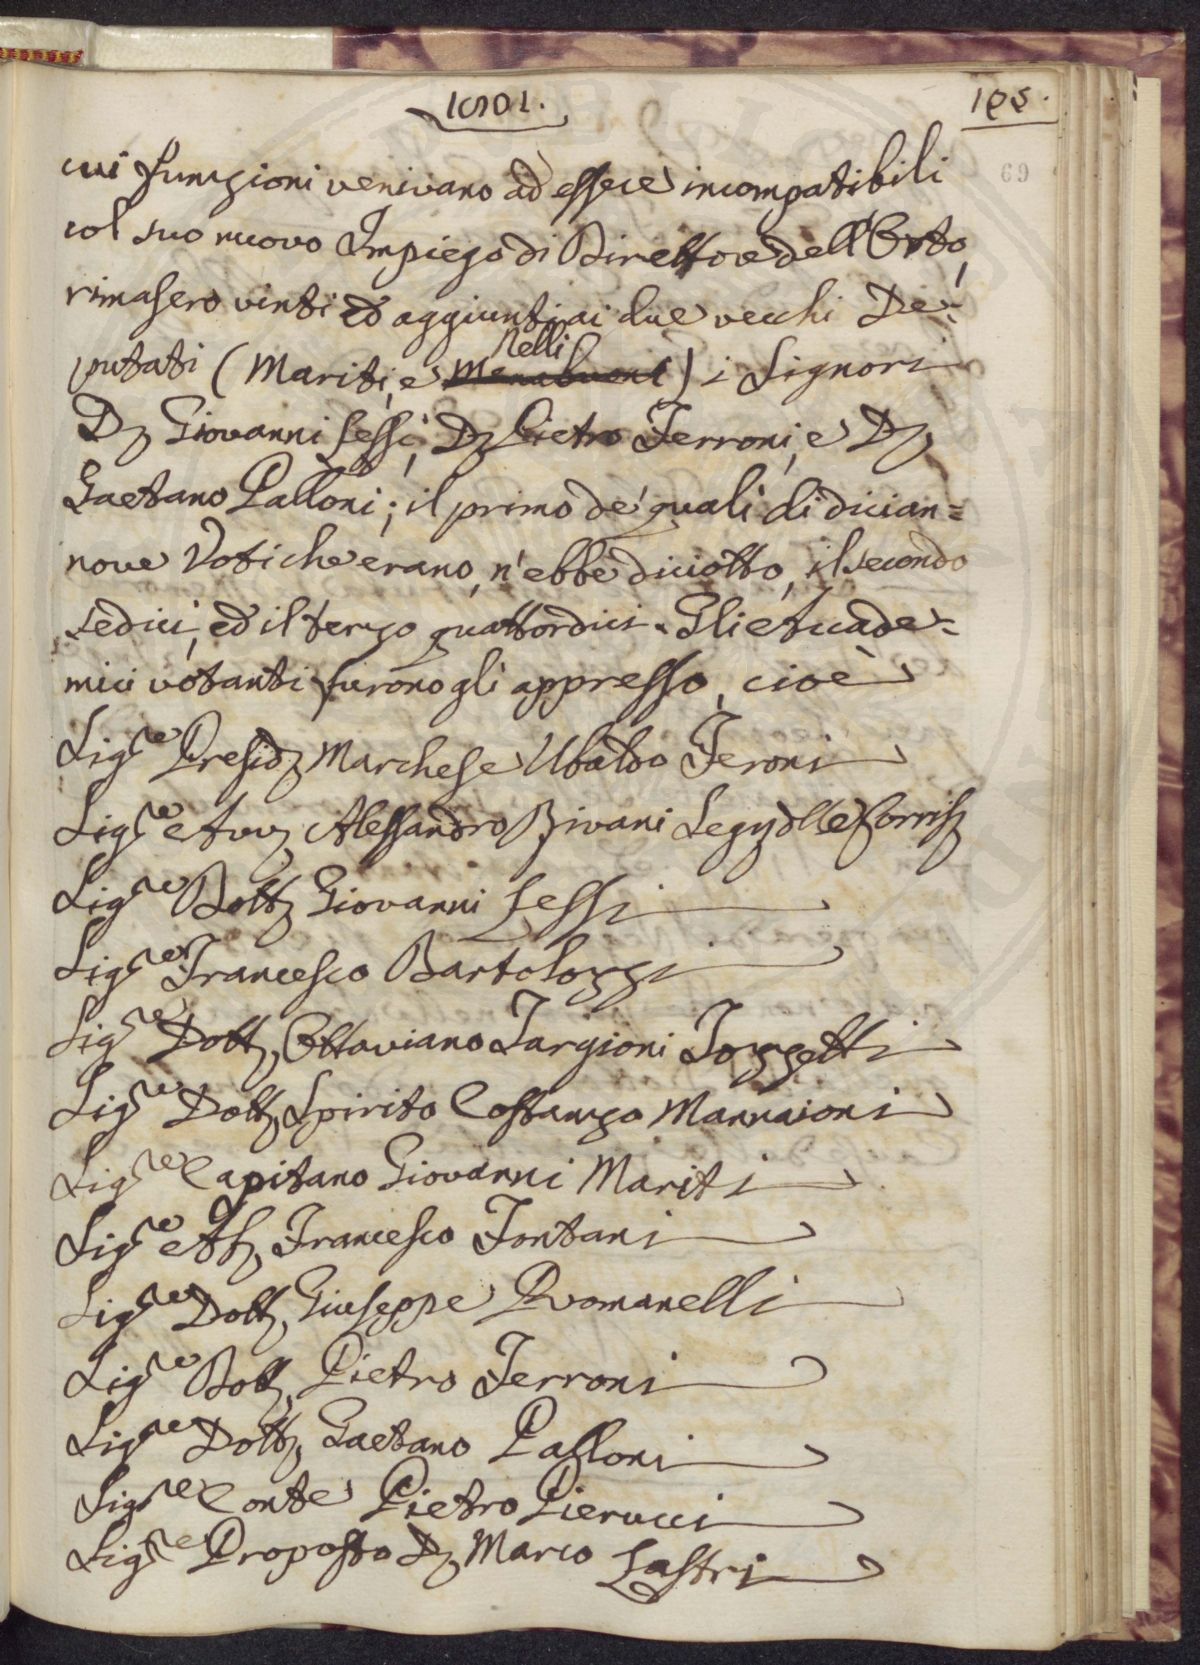 1801.
195.
69
cui funzioni venivano ad essere incompatibili
col suo nuovo Impiego di Direttore dell'Orto,
rimasero vinti ed aggiunti ai due vecchi De=
putati (Mariti, e Menabuoni Nelli) i Signori
D. Giovanni Lessi, D. Pietro Ferroni, e D.
Gaetano Palloni; il primo de' quali di dician=
nove Voti che erano, n'ebbe diciotto, il secondo
sedici, ed il terzo quattordici. Gli Accade=
mici votanti furono gli appresso, cioè
Sig.re Presid. Marchese Ubaldo Feroni
Sig.re Avv. Alessandro Rivani Seg. d'lle Corrisp.
Sig.re Dott. Giovanni Lessi
Sig.re Francesco Bartolozzi
Sig.re Dott. Ottaviano Targioni Tozzetti
Sig.re Dott. Spirito Costanzo Mannaioni
Sig.re Capitano Giovanni Mariti
Sig.re Ab. Francesco Fontani
Sig.re Dott. Giuseppe Romanelli
Sig.re Dott. Pietro Ferroni
Sig.re Dott. Gaetano Palloni
Sig.re Conte Pietro Pierucci
Sig.re Proposto D. Marco Lastri